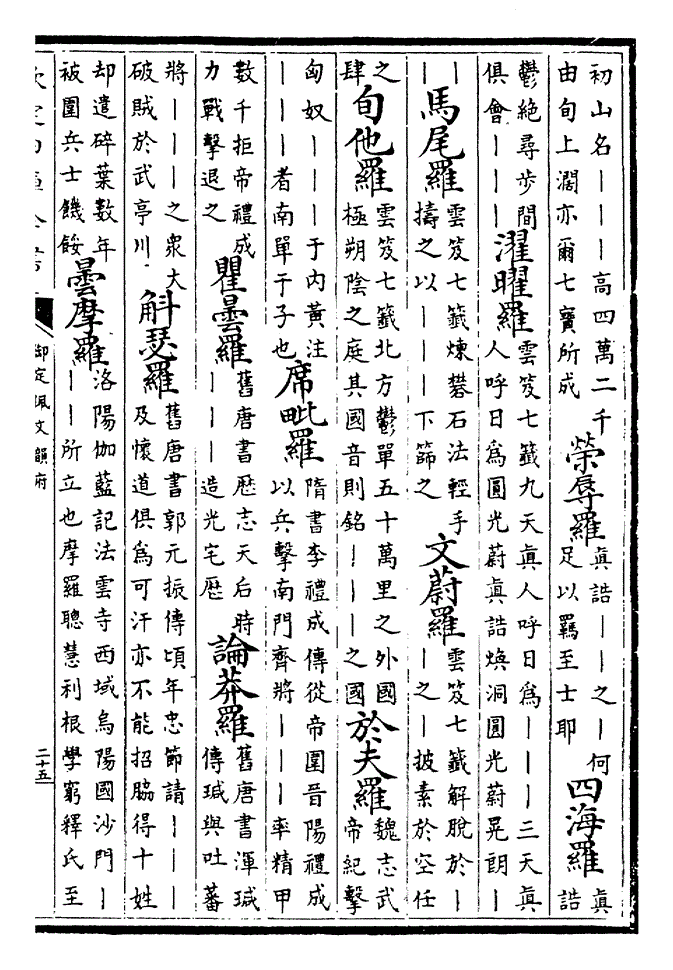 初山名｜｜｜高四萬二千
由旬上濶亦爾七寶所成
榮辱羅
眞誥｜｜之｜何
足以羈至士耶
四海羅
眞
誥
鬱絶尋歩間
俱會｜｜｜
濯曜羅
雲笈七籤九天眞人呼日爲｜｜｜三天眞
人呼日爲圓光蔚眞誥煥洞圓光蔚晃朗｜
｜
｜｜
馬尾羅
雲笈七籤煉礬石法輕手
擣之以｜｜｜下篩之
文蔚羅
雲笈七籤解脫於｜
｜｜之｜披素於空任
之
肆
旬他羅
雲笈七籤北方鬱單五十萬里之外國
極朔陰之庭其國音則銘｜｜｜之國
於夫羅
魏志武
帝紀擊
匈奴｜｜｜于内黃注
｜｜｜者南單于子也
席毗羅
隋書李禮成傳從帝圍晉陽禮成
以兵擊南門齊將｜｜｜率精甲
數千拒帝禮成
力戰擊退之
瞿曇羅
舊唐書歴志天后時
｜｜｜造光宅歴
論莽羅
舊唐書渾瑊
傳瑊與吐蕃
將｜｜｜之衆大
破賊於武亭川
斛瑟羅
舊唐書郭元振傳頃年忠節請｜｜｜
及懷道俱爲可汗亦不能招脇得十姓
却遣碎葉數年
被圍兵士饑餒
曇摩羅
洛陽伽藍記法雲寺西域烏陽國沙門｜
｜｜所立也摩羅聰慧利根學窮釋氏至
欽定四庫全書
御定佩文韻府
二十五